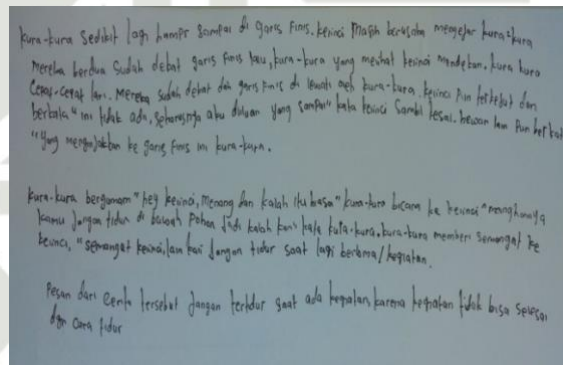 kura-kura sedikit lagi hampir sampai di garis finis. kelinci Masih berusaha mengejar kura-kura
mereka berdua sudah dekat garis finis lalu, kura-kura yang melihat kelinci mendekat. kura kura
Cepat-cepat lari. Mereka sudah dekat dan garis finis di lewati oleh kura-kura. kelinci Pun terkejut dan
berkata "ini tidak ada, seharusnya aku duluan yang sampai" kata kelinci Sambil kesal. hewan lain Pun berkata
"Yang menginjakkan ke garis finis ini kura-kura.
kura-kura bergumam "hey kelinci, Menang dan kalah itu biasa" kura-kura bicara ke kelinci
kamu Jangan tidur di bawah Pohon Jadi kalah kata kura-kura. kura-kura memberi semangat ke
kelinci, "semangat kelinci, lain kali Jangan tidur saat lagi berlomba/kegiatan.
Pesan dari cerita tersebut Jangan tertidur saat ada kegiatan, karena kegiatan tidak bisa selesai
dgn cara tidur